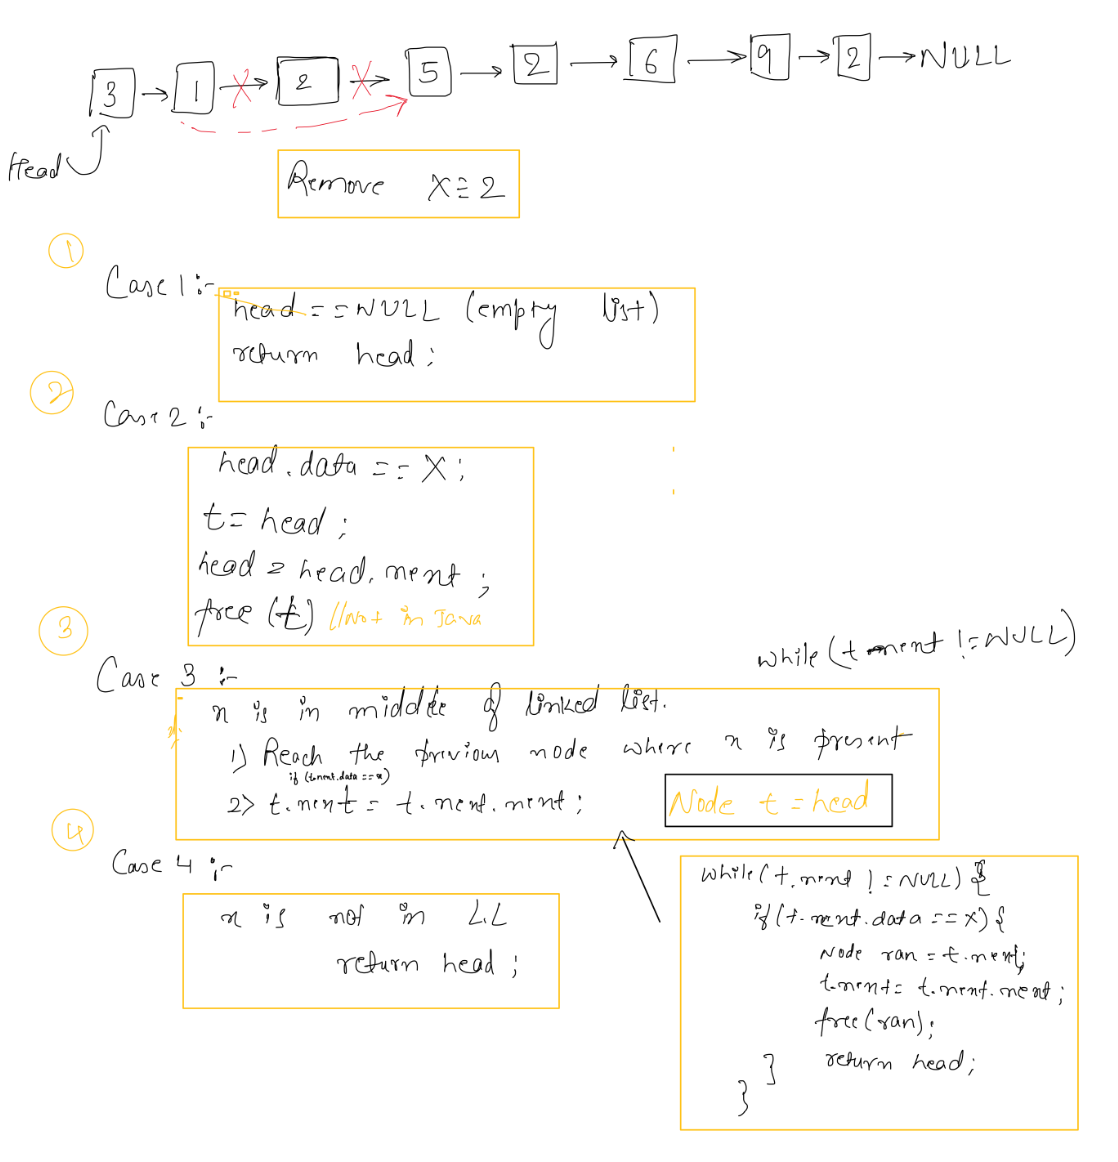 3 → 1 → 2 → 5 → 2 → 6 → 9 → 2 → NULL
Head
Remove X = 2
1
Case 1 :-
head == NULL (empty list)
return head ;
2
Case 2 :-
head . data == X ;
t = head ;
head = head . next ;
free (t) // Not in Java
3
while (t next != NULL)
Case 3 :-
x is in middle of linked list.
1) Reach the previous node where x is present
if (t.next.data == x)
2> t.next = t.next.next ;
Node t = head
4
Case 4 :-
x is not in L.L
return head ;
while (t.next != NULL) {
if (t.next.data == X) {
Node ran = t.next;
t.next = t.next.next ;
free (ran) ;
return head ;
}
}